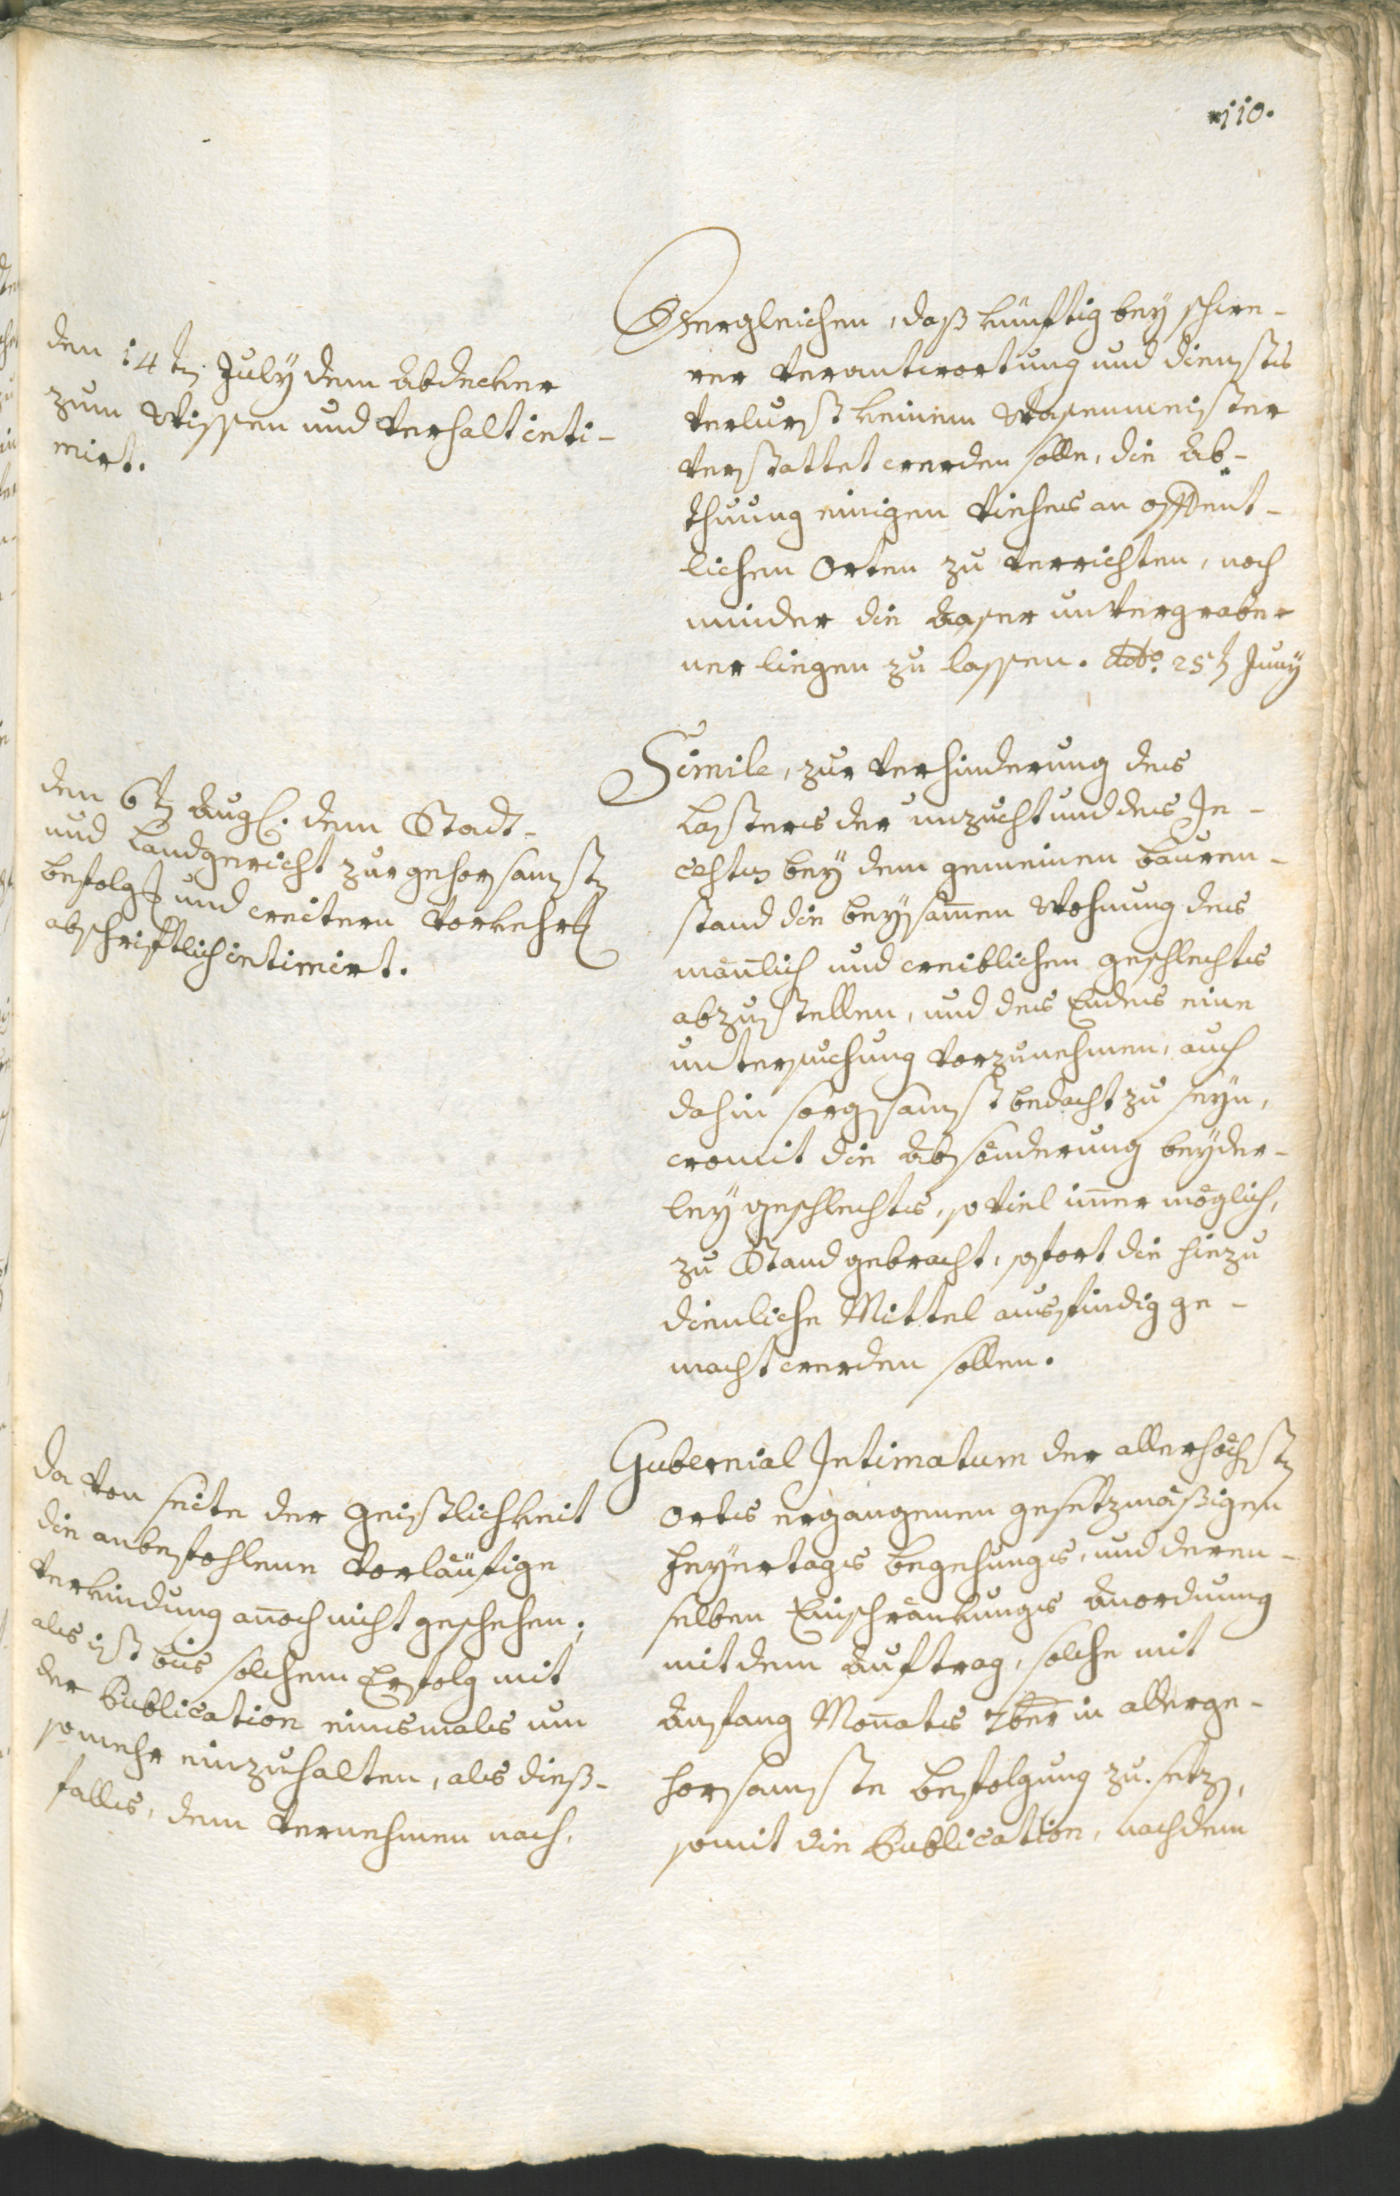 110.
den 14ten July dem Abdecker
zum Wissen und Verhalt inti-
mirt.
Dergleichen, daß künftig bey schwe-
rer Verantwortung und diensts
Verlurst keinem Wasenmeister
Verstattet werden solle, die Ab-
thuung einigen Viehes an offent-
lichen Orten zu Verrichten, noch
minder die Äaser unVergrabe-
ner liegen zu lassen. ddo. 25t Juny
den 6t Aug. dem Stadt-
und Landgericht zur gehorsamst
befolg und weitern Vorkehr
abschriftlich intimirt.
Simile, zur Verhinderung des
Lasters der unzucht und des In-
cestus bey dem gemeinen bauren-
stand die beysamen Wohnung des
mañlich und weiblichen geschlechts
abzustellen, und des Endes eine
untersuchung Vorzunehmen, auch
dahin sorgsamst bedacht zu seyn,
womit die Absönderung beyder-
ley geschlechts, so Viel im̄er möglich,
zu Stand gebracht, sofort die hiezu
dienliche Mittel ausfindig ge-
macht werden sollen.
Da Von seite der Geistlichkeit
die anbefohlene Vorläufige
Verkindung añoch nicht geschehen;
als ist bis solchem Erfolg mit
der Publication einsmals um
so mehr einzuhalten, als dieß-
falls, dem Vernehmen nach,
Gubernial Intimatum der allerhöchst
Orts ergangenen gesetzmäßigen
feyertags begehungs, und deren-
selben Einschränkungs Anordnung
mit dem Auftrag, solche mit
Anfang Moñats 7ber in allerge-
horsamste befolgung zu setzen,
somit die Publication, nachdem